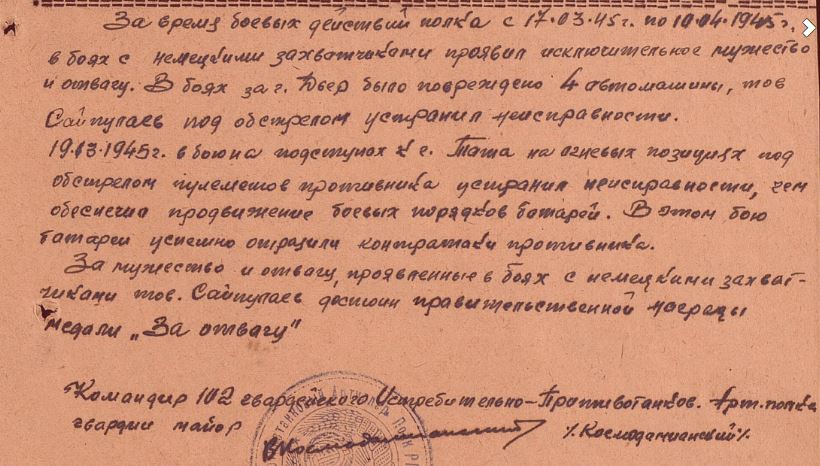 За время боевых действий полка с 17.03.45г. по 10.04.1945г.
в боях с немецкими захватчиками проявил исключительное мужество
и отвагу. В боях за г. Дьер было повреждено 4 автомашины, тов
Сайпулаев под обстрелом устранил неисправности.
19.03.1945г. в бою на подступах к г. Тата на огневых позициях под
обстрелом пулеметов противника устранил неисправности, чем
обеспечил продвижение боевых порядков батарей. В этом бою
батареи успешно отразили контратаки противника.
За мужество и отвагу, проявленные в боях с немецкими захват-
чиками тов. Сайпулаев достоин правительственной награды
медали „За отвагу"
Командир 102 гвардейского Истребительно-Противотанков. Арт. полка
гвардии майор /Космодамианский/.